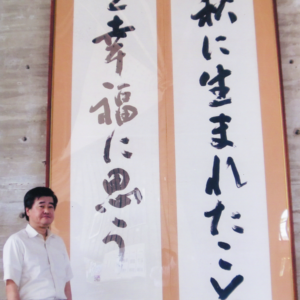 秋に生まれたこと
を幸福に思う